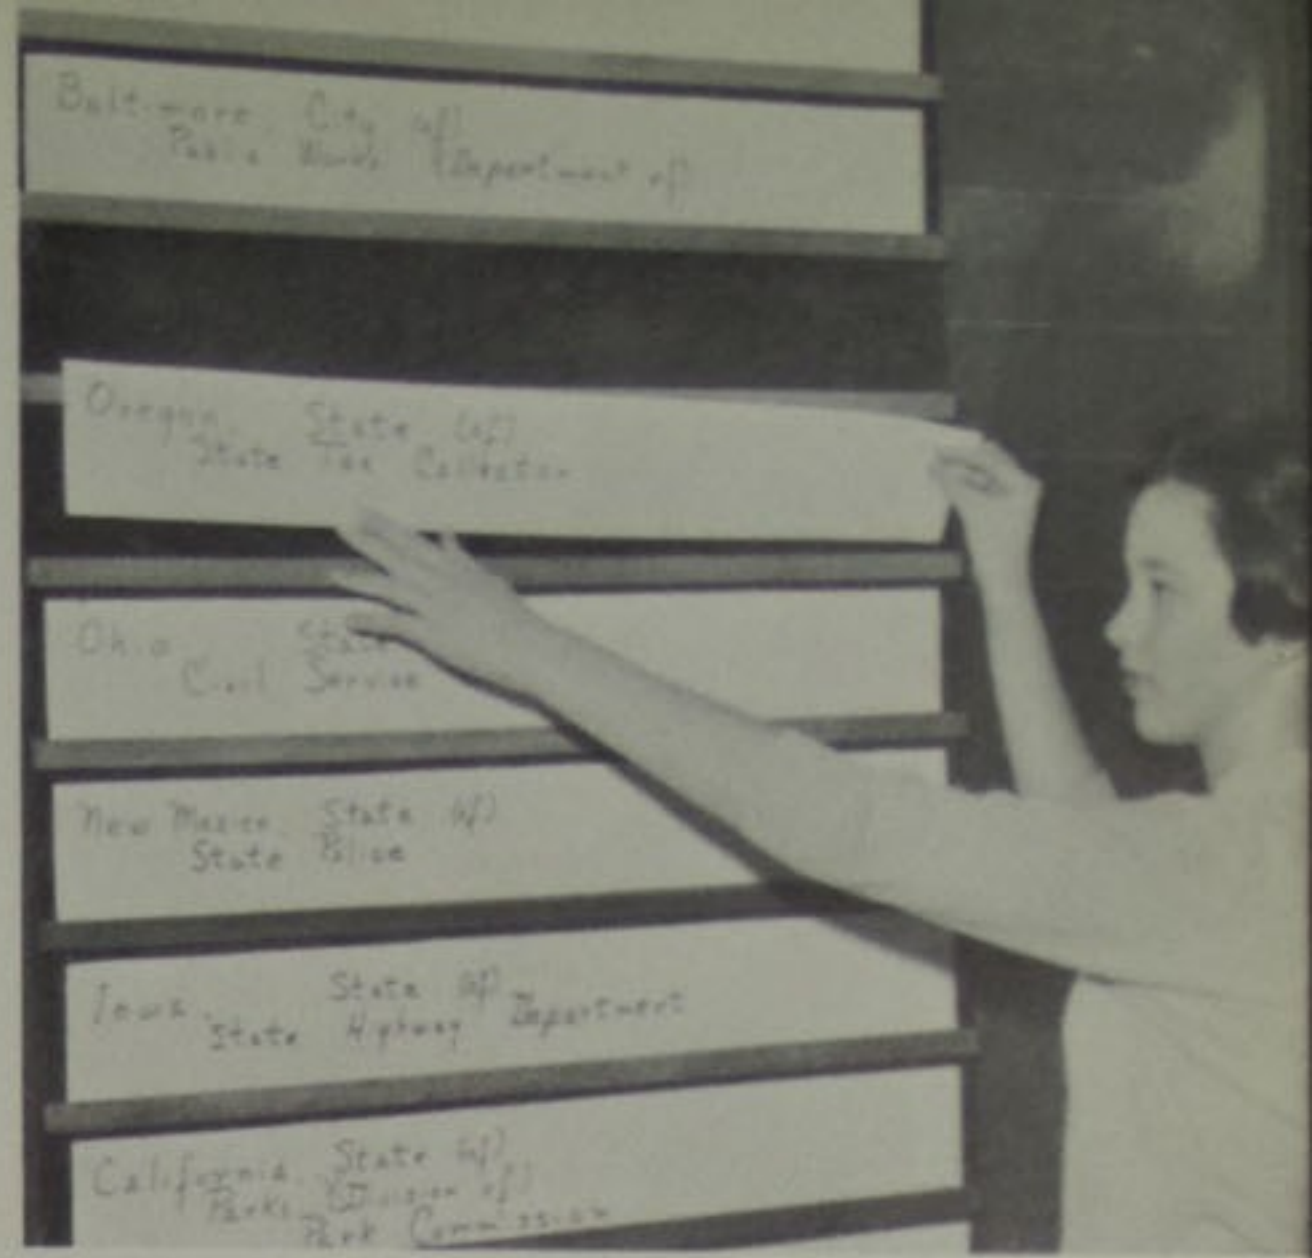 Baltimore, City (of)
Public Works (Department of)
Oregon, State (of)
State Tax Collector
Ohio, State
Civil Service
New Mexico, State (of)
State Police
Iowa, State (of)
State Highway Department
California, State (of)
Parks (Division of)
Park Commission